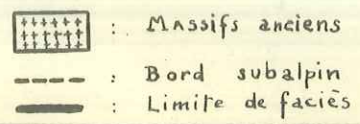 : Massifs anciens
: Bord subalpin
: Limite de faciès